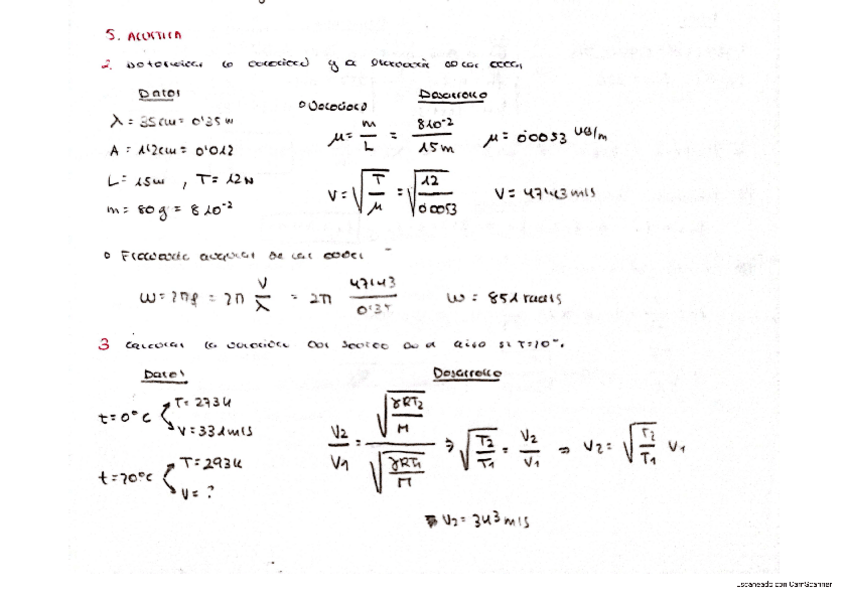 5. ACUSTICA
2. Determinar la velocidad y la frecuencia de las ondas
Datos
Desarrollo
λ = 35cm = 0'35 m
A = 1'2cm = 0'012
L = 15m , T = 12N
m = 80g = 8 10⁻²
Velocidad
μ = m/L = 8 10⁻²/15m   μ = 0'0053 kg/m
V = √(T/μ) = √(12/0'0053)   V = 47'43 m/s
Frecuencia angular de las ondas
ω = 2πf = 2π V/λ = 2π 47'43/0'35   ω = 851 rad/s
3 Calcular la velocidad del sonido en el aire si T=20º.
Datos
Desarrollo
t = 0ºC   T = 273K
V = 331m/s
t = 20ºC   T = 293K
V = ?
V₂/V₁ = √(γRT₂/M) / √(γRT₁/M) ⇒ √(T₂/T₁) = V₂/V₁ ⇒ V₂ = √(T₂/T₁) V₁
V₂ = 343 m/s
Escaneado con CamScanner